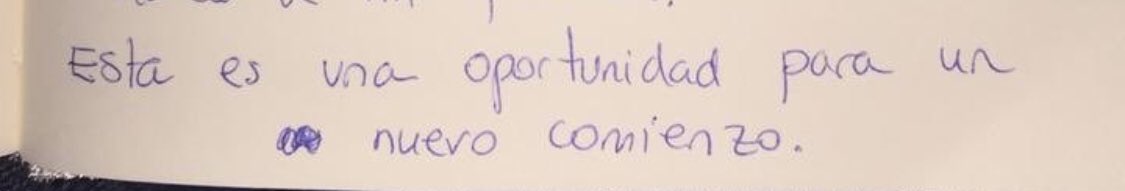 Esta es una oportunidad para un
nuevo comienzo.